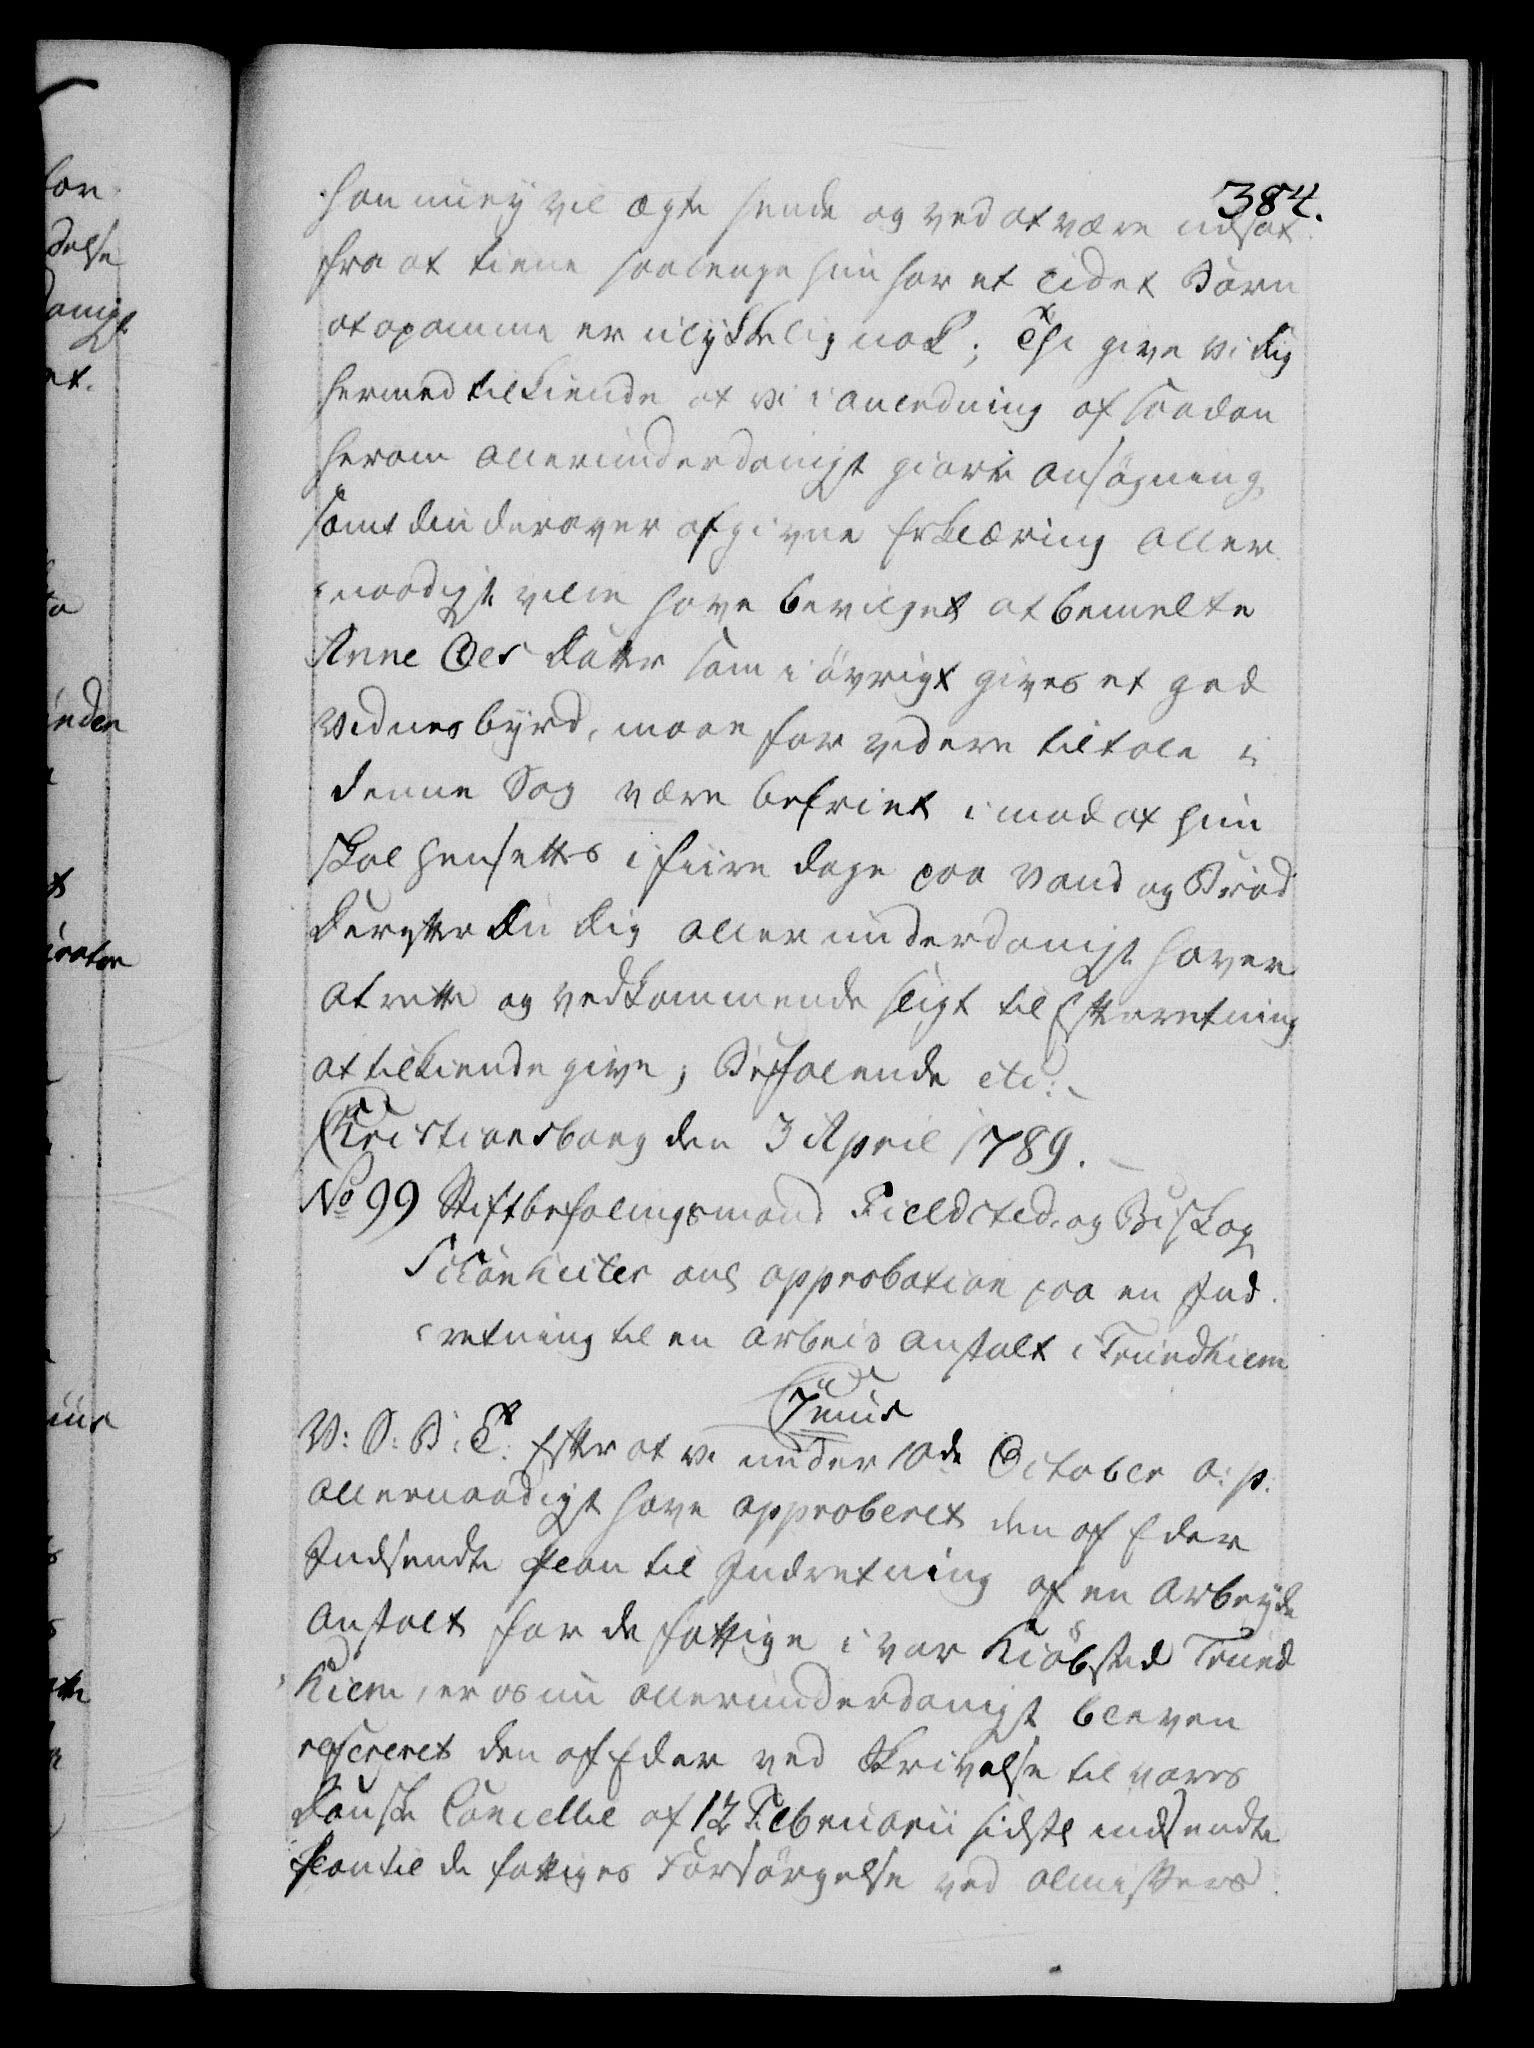 384.
han nu ey vil ægte hende og ved at være udsat
fra at tiene saalenge hun har et lidet Barn
at opamme er ulykkelig nok; Thi give vi dig
hermed tilkiende at vi i anledning af saadan
herom allerunderdanigst giorte ansøgning
samt din derover afgivne Erklæring aller-
naadigst ville have bevilget at bemelte
Anne Oles datter som i øvrigt gives et god
Vidnesbyrd, maae for videre tiltale i
denne Sag være befriet imod at hun
skal hensettes i fiire dage paa Vand og Brød
derefter du dig allerunderdanigst haver
at rette og vedkommende sligt til Efterretning
at tilkiende give, Befalende etc:
Christiansborg den 3 April 1789.
No 99 Stiftbefalingsmand Fieldsted og Biskop
Schönheiter ang approbation paa en Ind-
retning til en arbeids anstalt i Trundhiem
V: S: B: T: Efter at vi under 10de October a: p:
allernaadigst have approberet den af Eder
Indsendte Plan til Indretning af en Arbeyds
Anstalt for de fattige i vor Kiøbsted Trund-
hiem, er os nu allerunderdanigst bleven
refereret den af Eder ved Skrivelse til vores
danske Cancellie af 12 Februarii sidstl indsendte
Plan til de fattiges Forsørgelse ved almissers